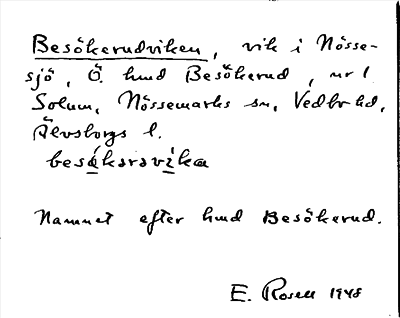 Besökerudviken, vik i Nösse-
sjö, Ö. hmd Besökerud, nr 1
Solum, Nössemarks sn, Vedbo hd,
Älvsborgs l.
besǿkərəvìka
Namnet efter hmd Besökerud.
E. Rosell 1948